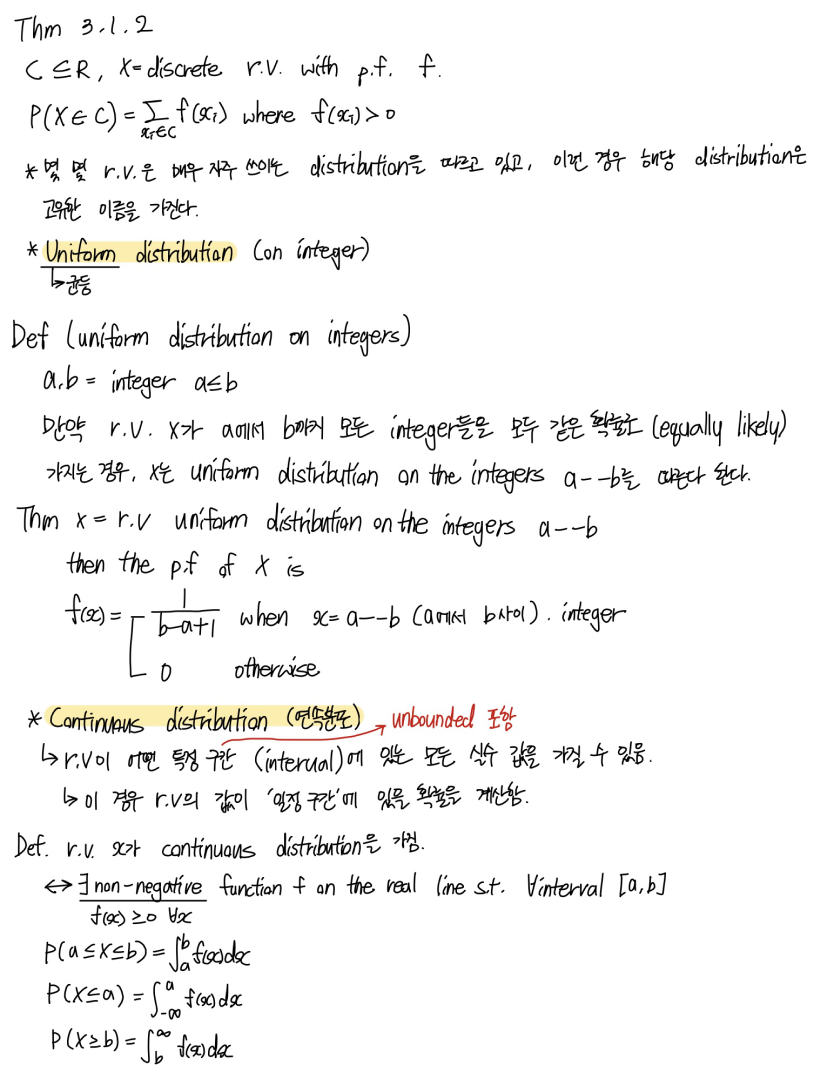 Thm 3.1.2
C ⊆ R, X = discrete r.v. with p.f. f.
P(X ∈ C) = ∑_{x_i∈C} f(x_i) where f(x_i) > 0
* 몇 몇 r.v.은 매우 자주 쓰이는 distribution을 따르고 있고, 이런 경우 해당 distribution은
고유한 이름을 가진다.
* Uniform distribution (on integer)
↳ 균등
Def (uniform distribution on integers)
a, b = integer a ≤ b
만약 r.v. X가 a에서 b까지 모든 integer들을 모두 같은 확률로 (equally likely)
가지는 경우, X는 uniform distribution on the integers a--b를 따른다 한다.
Thm X = r.v uniform distribution on the integers a--b
then the p.f of X is
f(x) = 1/(b-a+1) when x = a--b (a에서 b사이). integer
0 otherwise
* Continuous distribution (연속분포) → unbounded 포함
↳ r.v이 어떤 특정 구간 (interval)에 있는 모든 실수 값을 가질 수 있음.
↳ 이 경우 r.v의 값이 '일정 구간'에 있을 확률을 계산함.
Def. r.v. X가 continuous distribution을 가짐.
↔ ∃ non-negative function f on the real line s.t. ∀interval [a,b]
f(x) ≥ 0 ∀x
P(a ≤ X ≤ b) = ∫_a^b f(x)dx
P(X ≤ a) = ∫_{-∞}^a f(x)dx
P(X ≥ b) = ∫_b^∞ f(x)dx